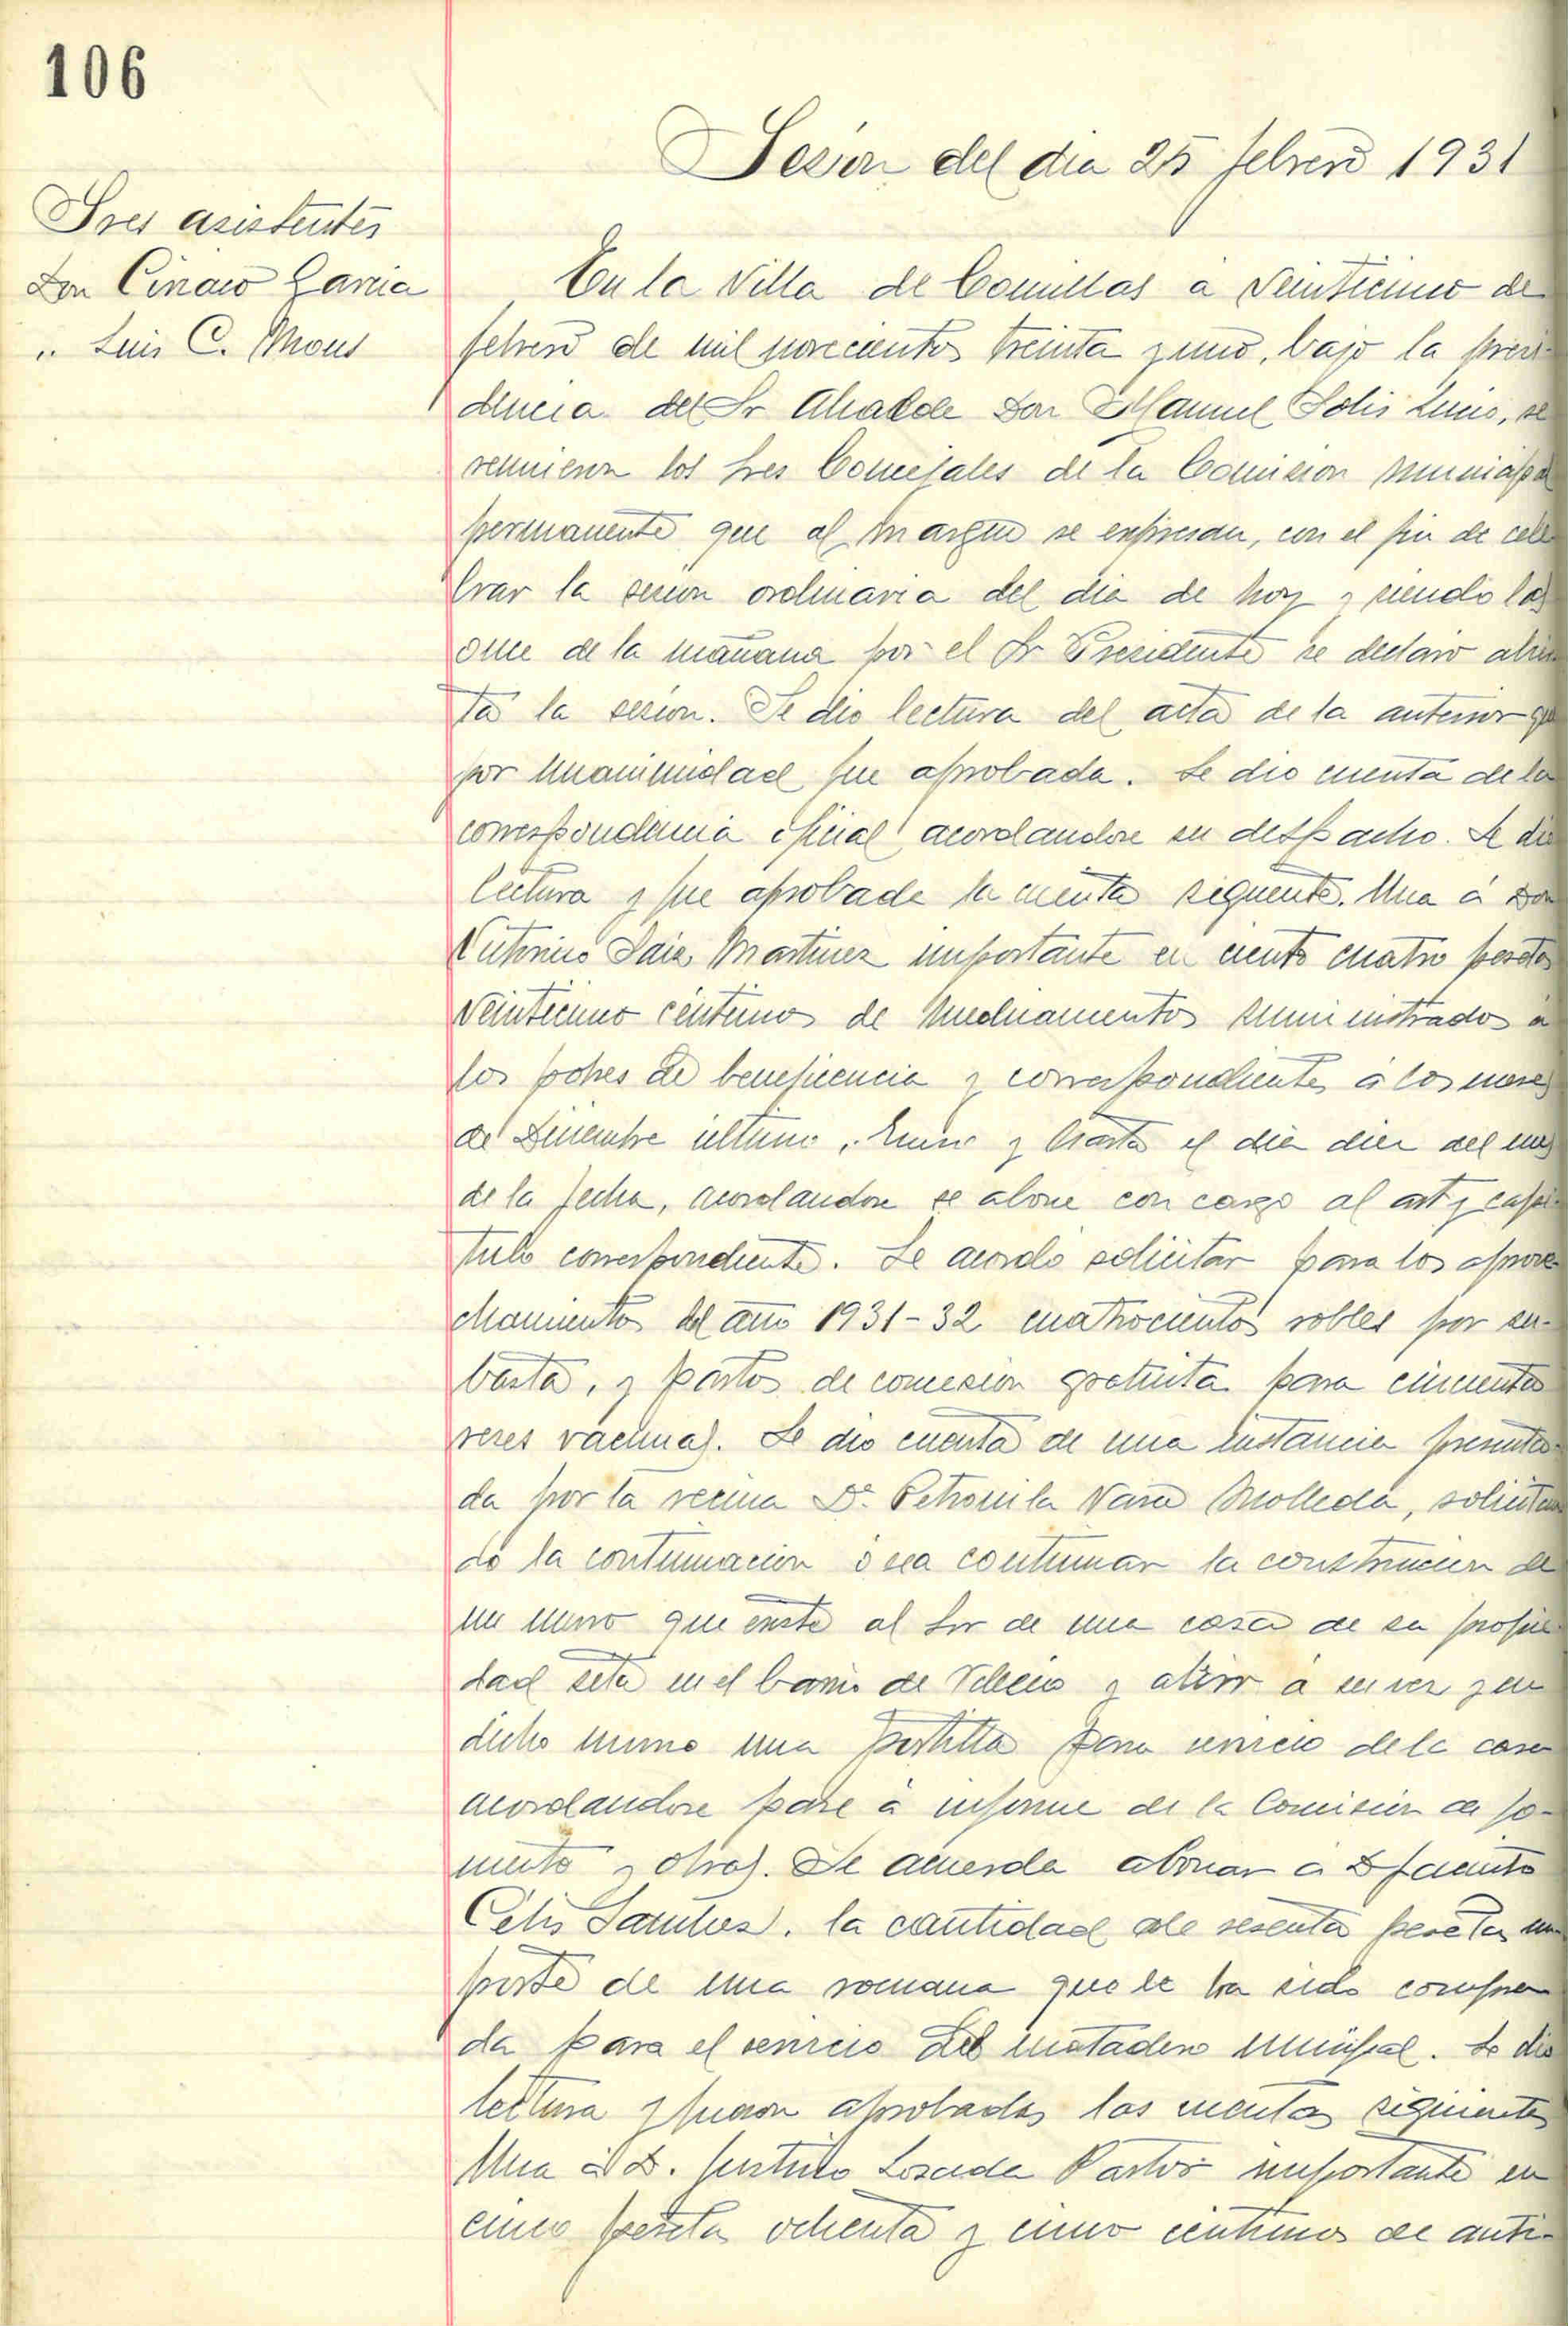 106
Sesion del dia 25 febrero 1931
Sres asistentes
Don Ciriaco Garcia
" Luis C. Mons
En la Villa de Comillas a veinticinco de
febrero de mil novecientos treinta y uno, bajo la presi-
dencia del Sr Alcalde Don Manuel Solis, se
reunieron los Sres Concejales de la Comision municipal
permanente que al margen se expresan, con el fin de cele
brar la sesion ordinaria del dia de hoy y siendo las
once de la mañana por el Sr Presidente se declaro abier
ta la sesion. Se dio lectura del acta de la anterior que
por unanimidad fue aprobada. Se dio cuenta de la
correspondencia oficial acordandose su despacho. Se dio
lectura y fue aprobada la cuenta siguente. Una a Don
Victorino Saiz Martinez importante en ciento cuatro pesetas
veinticinco centimos de medicamentos suministrados a
los pobres de beneficencia y correspondientes a los meses
de Diciembre ultimo, Enero y hasta el dia diez del mes
de la fecha, acordandose se abone con cargo al art y capi-
tulo correspondiente. Se acordo solicitar para los aprove
chamientos del año 1931-32 cuatrocientos robles por su-
basta, y pastos de concesion gratuita para cincuenta
reses vacunas. Se dio cuenta de una instancia presenta
da por la vecina Dª Petronila Vara Molleda, solicitan
do la continuacion o sea continuar la construccion de
un muro que existe al Sur de una casa de su propie
dad sita en el barrio de Velecio y abrir a su vez y en
dicho muro una portilla para servicio de la casa
acordandose pase a informe de la Comision de fo-
mento y obras. Se acuerda abonar a D Jacinto
Celis Santos, la cantidad de sesenta pesetas im
porte de una romana que le ha sido compra
da para el servicio del matadero municipal. Se dio
lectura y fueron aprobadas las cuentas siguientes
Una a D. Losada Pastor importante en
cinco pesetas ochenta y cinco centimos de anti-